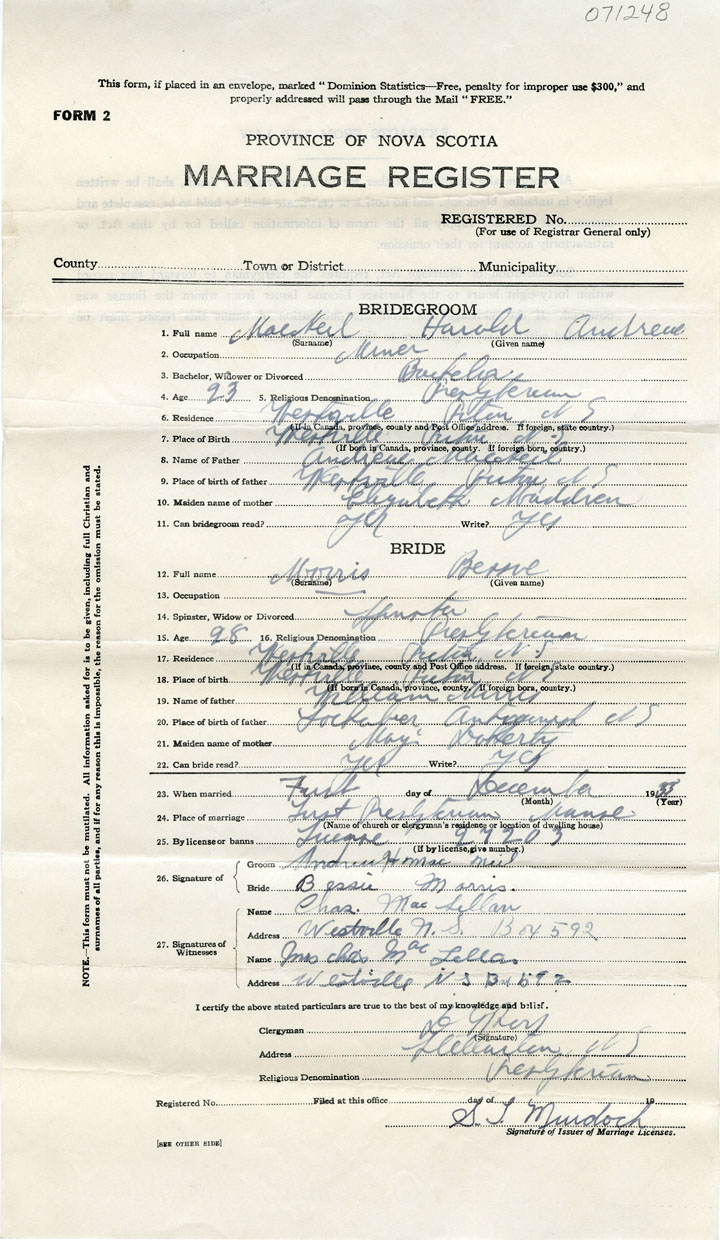 071248
This form, if placed in an envelope, marked "Dominion Statistics—Free, penalty for improper use $300," and
properly addressed will pass through the Mail "FREE."
FORM 2
PROVINCE OF NOVA SCOTIA
MARRIAGE REGISTER
REGISTERED No.
(For use of Registrar General only)
County Town or District Municipality
BRIDEGROOM
1. Full name MacNeil Harold Andrew
(Surname) (Given name)
2. Occupation Miner
3. Bachelor, Widower or Divorced Bachelor
4. Age 23 5. Religious Denomination Presbyterian
6. Residence Westville Pictou N S
(If in Canada, province, county and Post Office address. If foreign, state country.)
7. Place of Birth Westville Pictou N S
(If born in Canada, province, county. If foreign born, country.)
8. Name of Father Andrew MacNeil
9. Place of birth of father Westville Pictou N S
10. Maiden name of mother Elizabeth Maddren
11. Can bridegroom read? Yes Write? Yes
BRIDE
12. Full name Morris Bessie
(Surname) (Given name)
13. Occupation
14. Spinster, Widow or Divorced Spinster
15. Age 28 16. Religious Denomination Presbyterian
17. Residence Westville Pictou N S
(If in Canada, province, county and Post Office address. If foreign, state country.)
18. Place of birth Westville Pictou N S
(If born in Canada, province, county. If foreign born, country.)
19. Name of father William Morris
20. Place of birth of father Lochaber Antigonish N S
21. Maiden name of mother Doherty
22. Can bride read? Yes Write? Yes
23. When married First day of December 1933
(Month) (Year)
24. Place of marriage First Presbyterian Manse
(Name of church or clergyman's residence or location of dwelling house)
25. By license or banns License 27203
(If by license, give number.)
26. Signature of
Groom Andrew H mac neil
Bride Bessie Morris.
27. Signatures of Witnesses
Name Chas. MacLellan
Address Westville N. S. Box 592
Name Mrs Chas MacLellan
Address Westville N S Box 592
I certify the above stated particulars are true to the best of my knowledge and belief.
Clergyman
(Signature)
Address Stellarton N S
Religious Denomination Presbyterian
Registered No. Filed at this office day of 19
S. T. Murdoch
Signature of Issuer of Marriage Licenses.
[SEE OTHER SIDE]
NOTE.—This form must not be mutilated. All information asked for is to be given, including full Christian and
surnames of all parties, and if for any reason this is impossible, the reason for the omission must be stated.